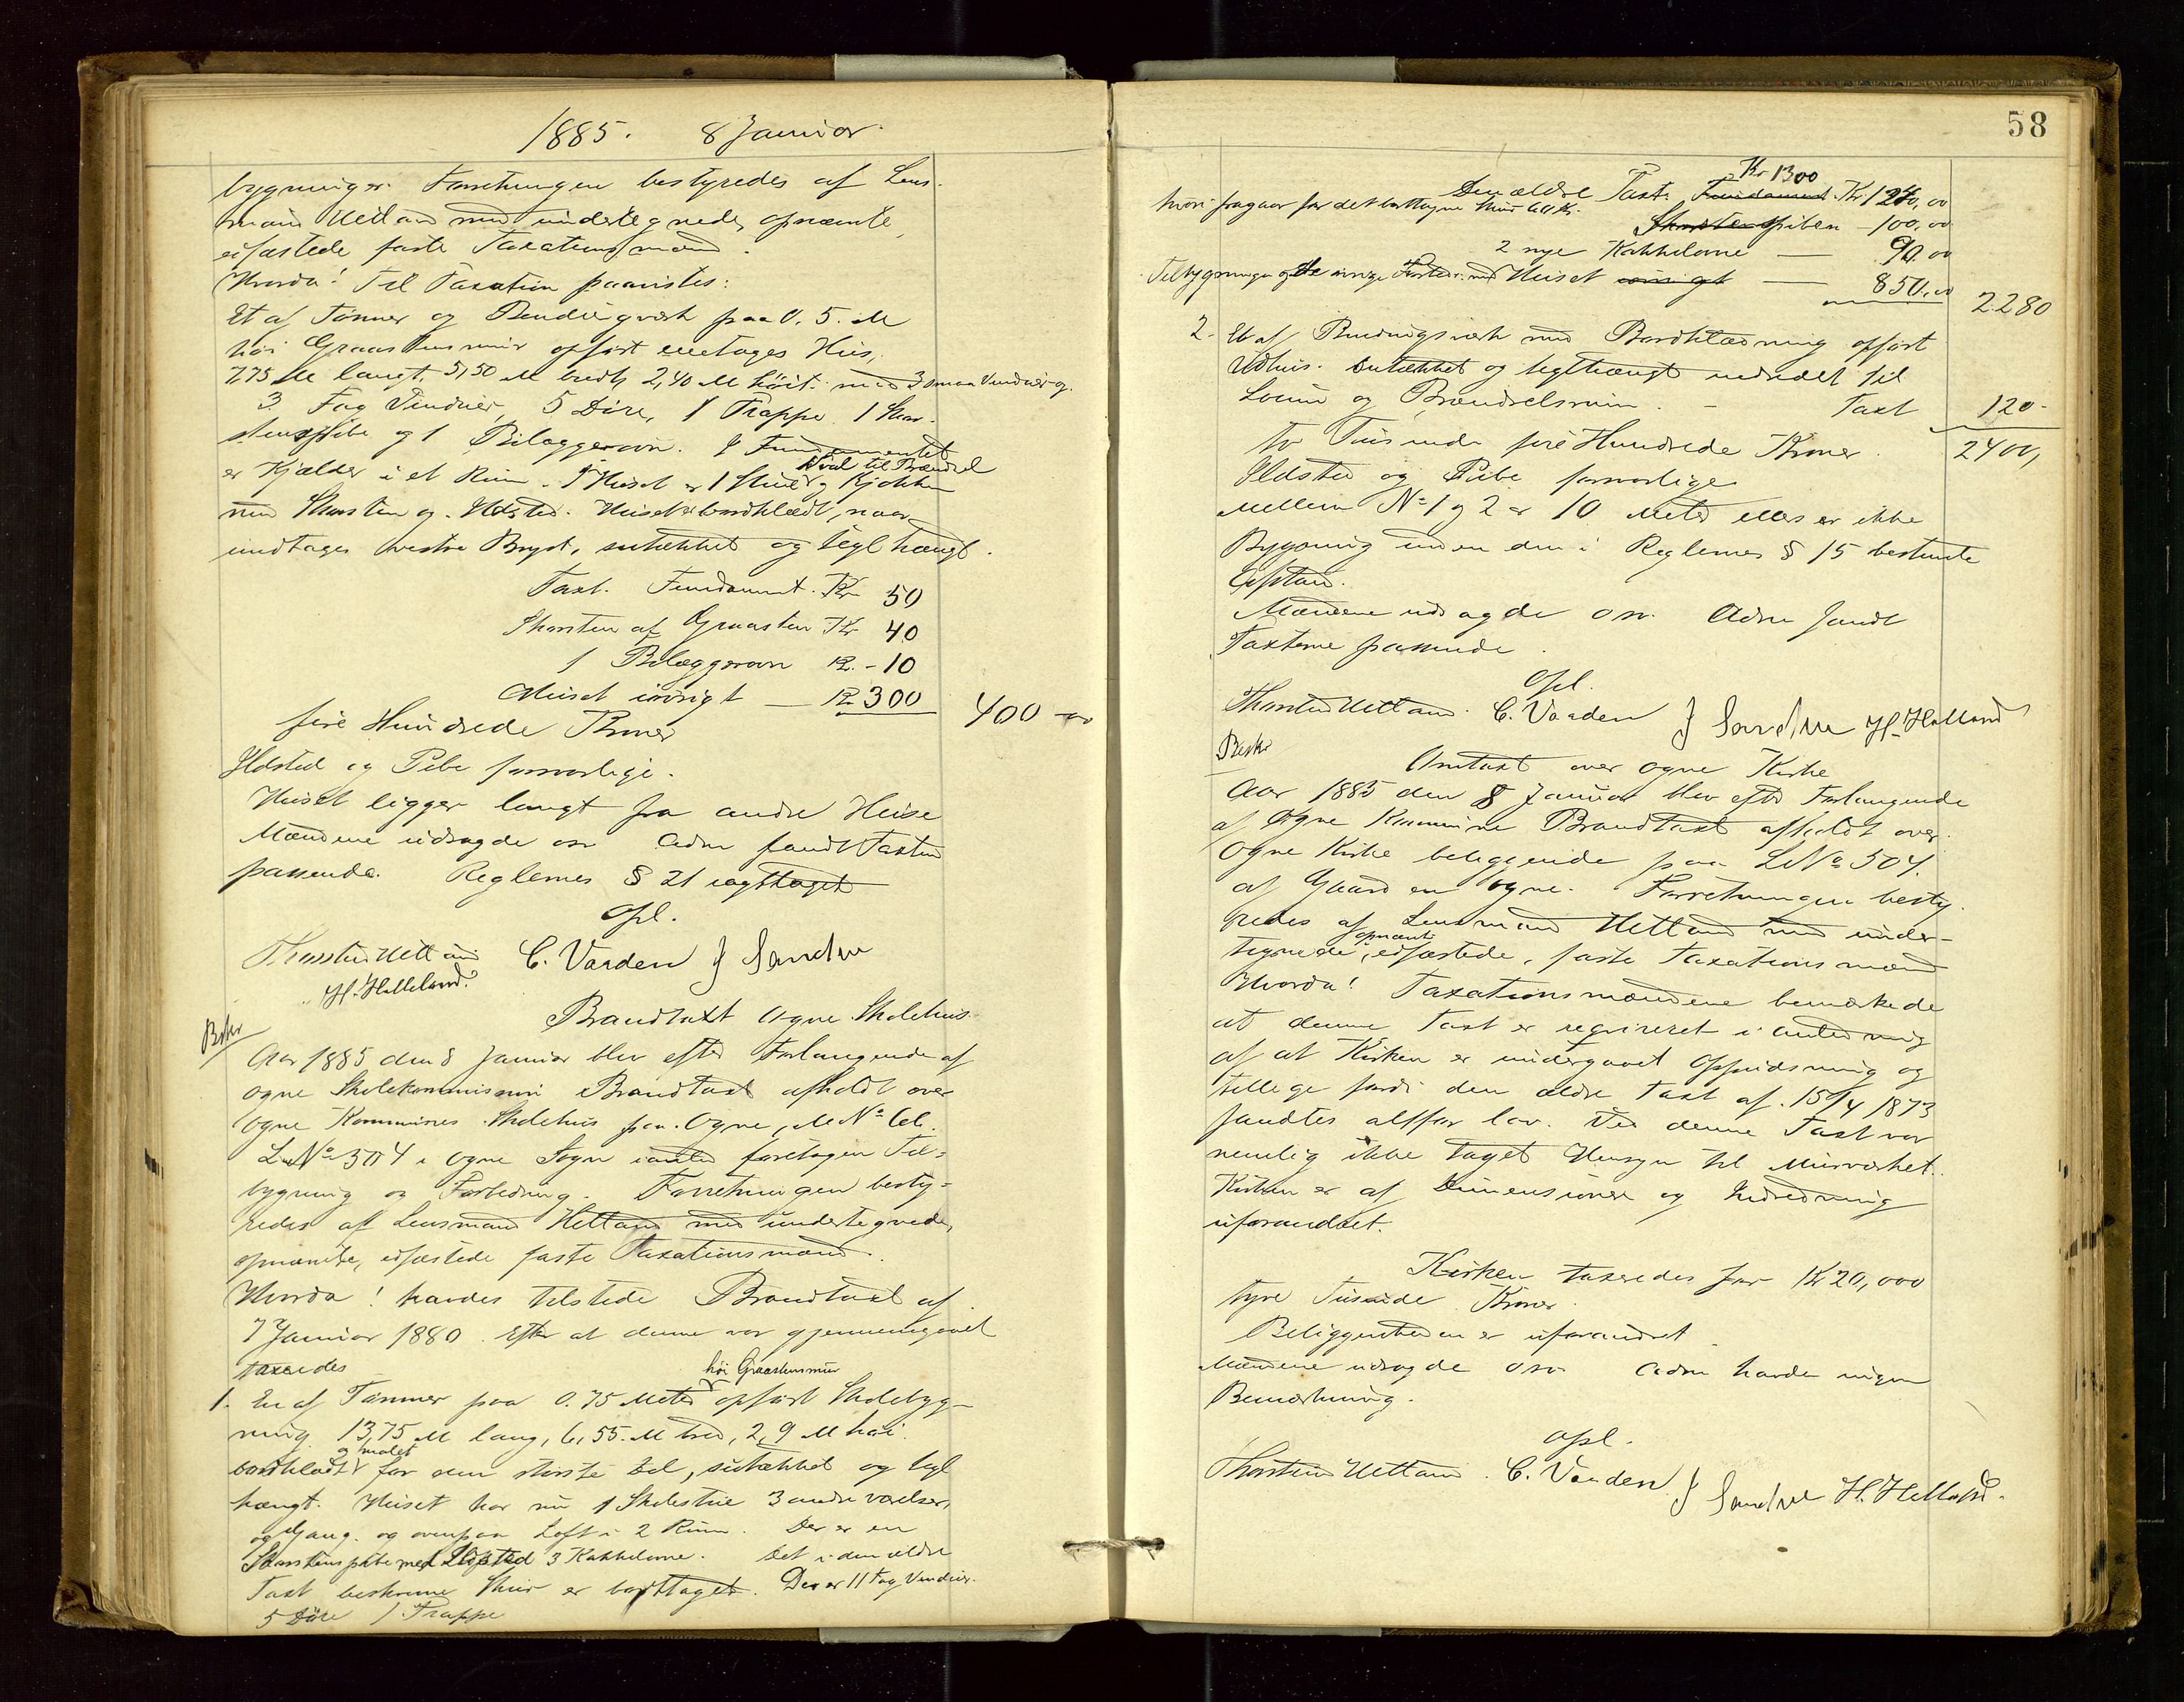 1885. 8 Januar.
bygninger. Forretningen bestyredes af Lens-
mand Hetland med undertegnede, opnævnte,
edfæstede faste Taxationsmænd.
Hvorda! Til Taxation paavistes:
Et af Tømmer og Bindingværk paa 0.5. M
høi Graastensmur opført eenetages Hus,
7,75 M langt, 5,50 M bredt, 2,40 M høit med 3 smaa Vinduer og
3 Fag Vinduer, 5 Döre, 1 Trappe 1 Skor-
stenspibe og 1 Bilæggerovn. I Fundamentet
er Kjælder i et Rum. I Huset er 1 Stue, Sval til Brændsel og Kjøkken
med Skorsten og Ildsted. Huset er bordklædt, naar
undtages vestre Bryst, sutækket og teglhængt.
Taxt. Fundament. Kr 50
Skorsten af Graasten Kr 40
1 Bilæggerovn Kr. - 10
Huset iøvrigt — Kr 300
400 -
fire Hundrede Kroner
Ildsted og Pibe forsvarlige.
Huset ligger langt fra andre Huse
Mændene udsagde osv Adm fandt Taxten
passende. Reglemes § 21 iagttaget
Opl.
Thorsten Hetland C. Vaaden J Sandve
H. Helleland.
Beskr
Brandtaxt Ogne Skolehus.
Aar 1885 den 8 Januar blev efter Forlangende af
Ogne Skolekommission Brandtaxt afholdt over
Ogne Kommunes Skolehus paa Ogne, M No 66.
L No 304 i Ogne Sogn i anled foretagen Til-
bygning og Forbedring. Forretningen besty-
redes af Lensmand Hetland med undertegnede,
opnævnte, edfæstede faste Taxationsmænd.
Hvorda! havdes tilstede Brandtaxt af
7 Januar 1880. Efter at denne var gjennemgaaet
taxeredes
1. En af Tømmer paa 0.75 Meter høi Graastensmur opført Skolebyg-
ning 13,75 M lang, 6,55 M bred, 2,9 M høi.
bordklædt og malet for den største Del, sutækket og tegl
hængt. Huset har nu 1 Skolestue 3 andre værelser,
og Gang. og ovenpaa Loft i 2 Rum. Der er en
Skorstenspibe med Ildsted 3 Kakkelovne. Det i den ældre
Taxt beskrevne Skur er borttaget. Der er 11 Fag Vinduer.
5 Döre 1 Trappe
58
Kr 1300
Den ældre Taxt. Fundament. Kr 1240,00
hvori fragaar for det borttagne Skur 60 Kr.
Skorstenspiben - 100,00
2 nye Kakkelovne — 90.00
Tilbygningen og de øvrige Forbedr. ved Huset øvrigt — 850,00
2280
2. Et af Bindingsværk med Bordklædning opført
Udhus. sutækket og teglhængt indredet til
Locum og Brændselsrum. - Taxt 120-
to Tusinde fire Hundrede Kroner. 2400,
Ildsted og Pibe forsvarlige
Mellem No 1 og 2 er 10 Meter ellers er ikke
Bygning inden den i Reglemes § 15 bestemte
Afstand.
Mændene udsagde osv. Adm fandt
Taxterne passende.
Opl.
Thorsten Hetland. C. Vaaden J Sandve H. Helland
Beskr
Omtaxt over Ogne Kirke
Aar 1885 den 8 Januar blev efter Forlangende
af Ogne Kommune Brandtaxt afholdt over
Ogne Kirke beliggende paa L No 304.
af Gaarden Ogne. Forretningen besty-
redes af Lensmand Hetland med under-
tegnede, opnævnte, edfæstede, faste Taxationsmænd
Hvorda! Taxationsmændene bemærkede
at denne Taxt er reqvireret i Anledning
af at Kirken er undergaaet Oppudsning og
tillige fordi den ældre Taxt af 15/4 1873
fandtes altfor lav. Ved denne Taxt var
nemlig ikke taget Hensyn til Murværket.
Kirken er af Dimensioner og Indredning
uforandret.
Kirken taxeredes for Kr 20,000
tyve Tusinde Kroner.
Beliggenheden er uforandret.
Mændene udsagde osv. Adm havde ingen
Bemærkning.
Opl.
Thorsten Hetland. C. Vaaden. J Sandve H. Helland.